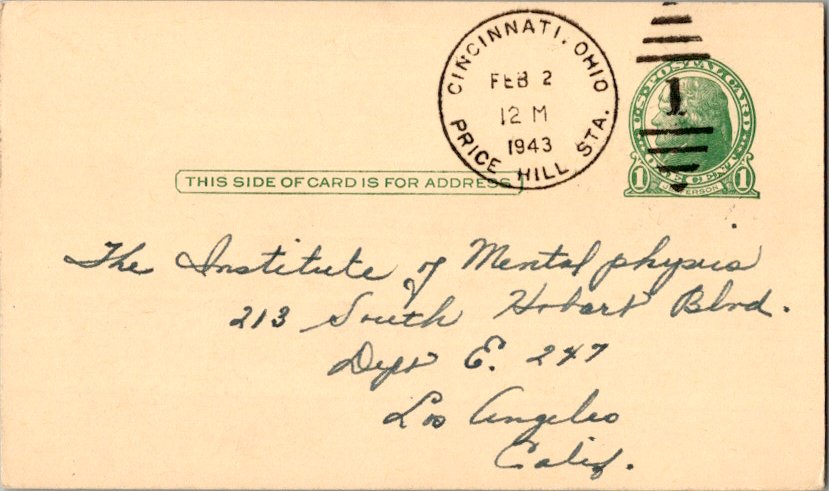 CINCINNATI, OHIO
FEB 2
12 M
1943
PRICE HILL STA.
1
U.S. POSTAL CARD
1 JEFFERSON 1
THIS SIDE OF CARD IS FOR ADDRESS
The Institute of Mentalphysics
213 South Hobart Blvd.
Dept E. 247
Los Angeles
Calif.